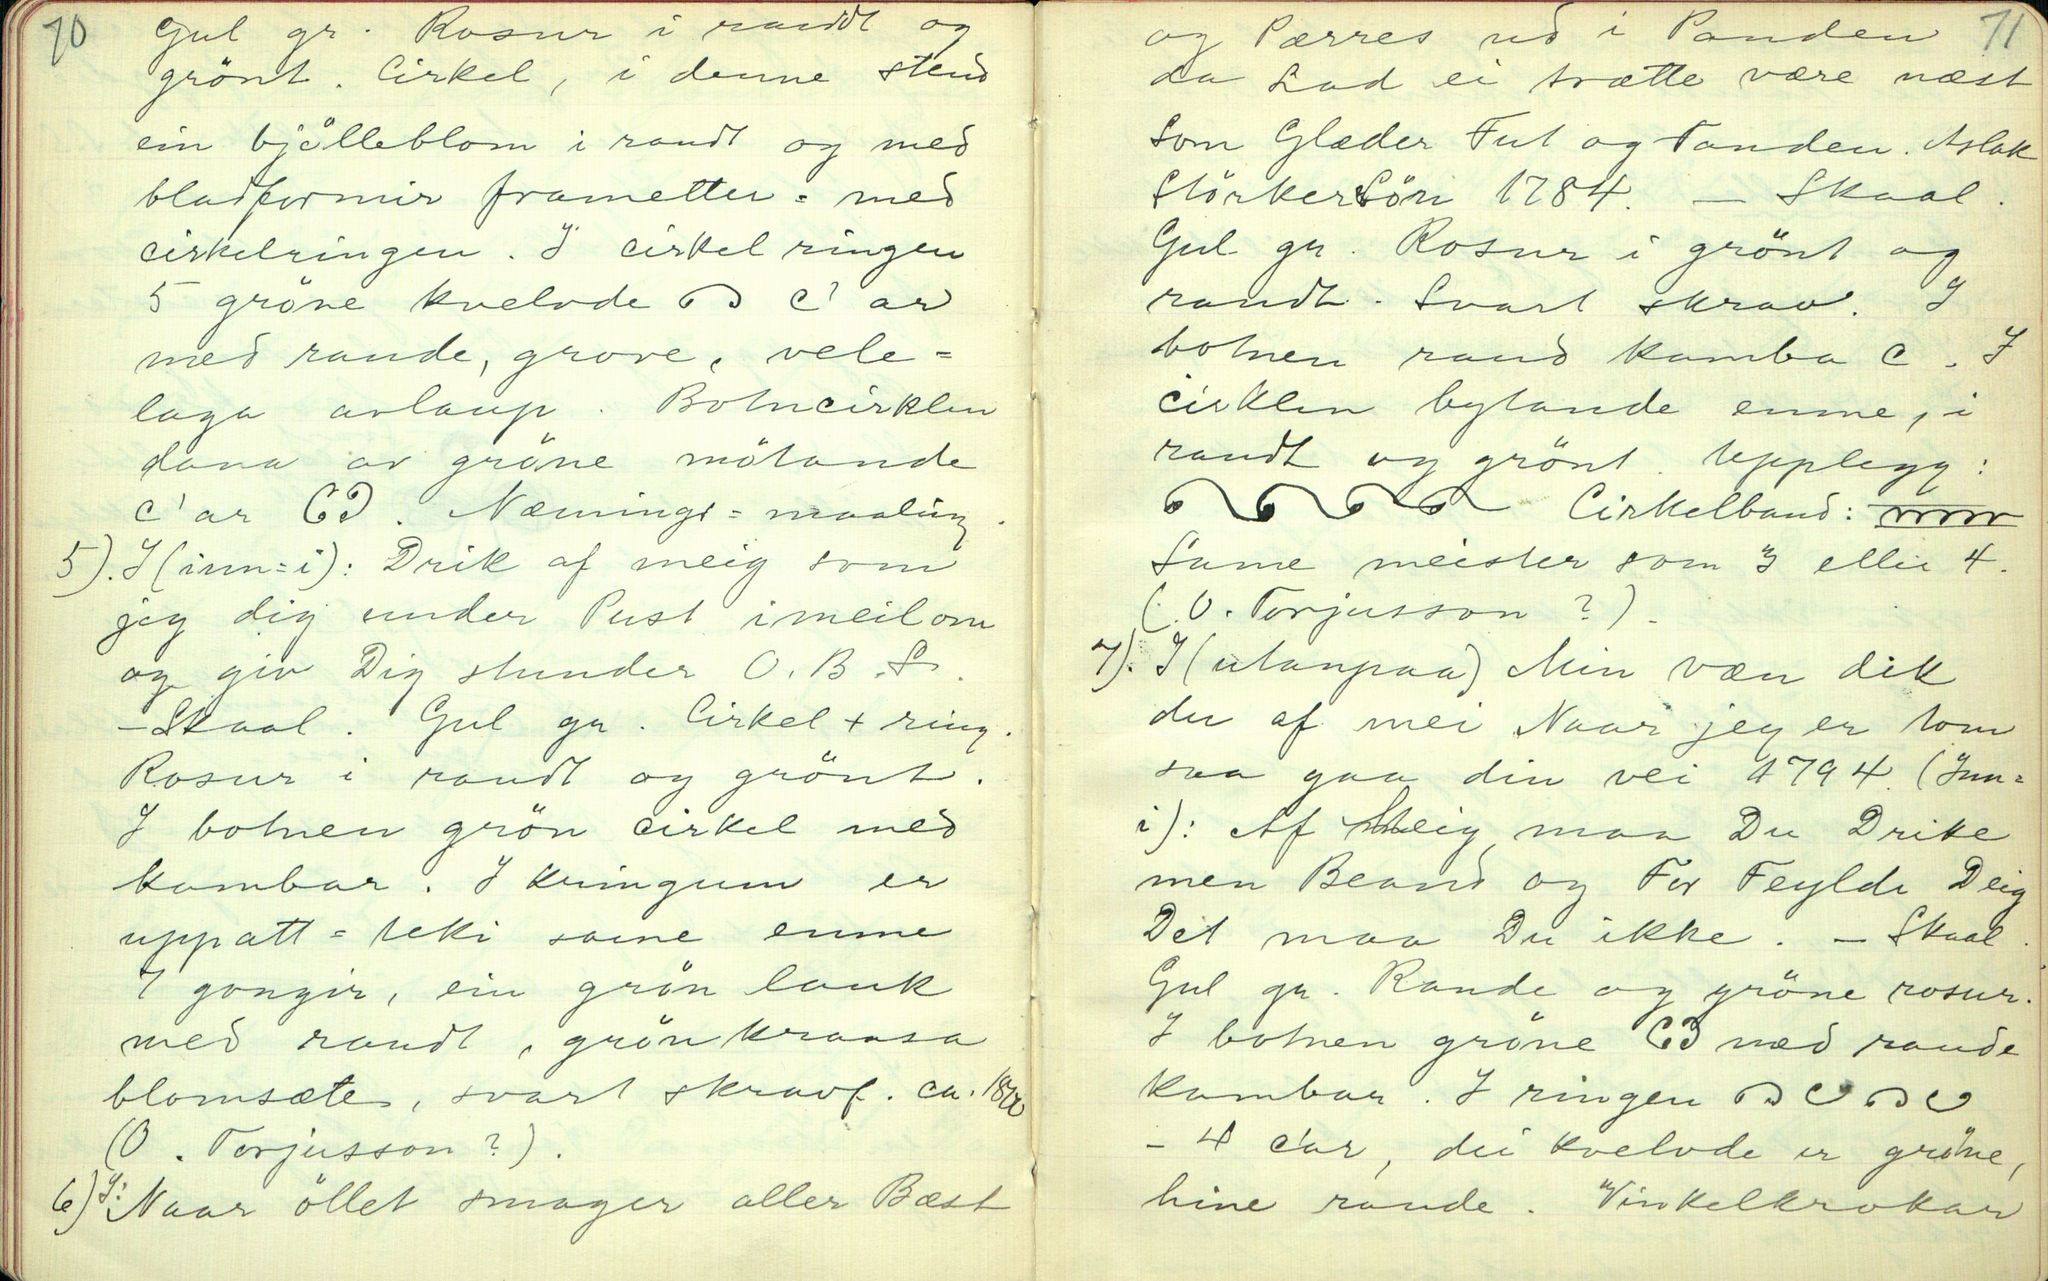 70
Gul gr. Rosur i raudt og
grönt. Cirkel, i denne stend
ein bjölleblom i raudt og med
bladformir frametter = med
cirkelringen. I cirkelringen
5 gröne kvelvde c'ar
med raude, grove, vele =
laga avlaup. Botncirklen
dana av gröne mötande
c'ar CƆ. Næmings = maaling.
5). I (inn = i): Drik af meig som
jeg dig under Pust imeilom
og giv Dig stunder O. B. S.
- Skaal. Gul gr. Cirkel + ring.
Rosur i raudt og grönt.
I botnen grön cirkel med
kambar. I kringum er
uppatt = teki same emne
7 gongir, ein grön lauk
med raudt, grön kraasa
blomsæte, svart skravf. ca. 1800
(O. Torjusson?).
6) I: Naar öllet smager aller Bæst
71
og Pærres ud i Panden
da Lad ei trætte være næst
Som Glæder Fut og Fanden. Aslak
StörkerSön 1784. — Skaal.
Gul gr. Rosur i grönt og
raudt. Svart skrav. I
botnen raud kamba C. I
cirklen bytande emne, i
raudt og grönt. Upplegg:
Cirkelband:
Same meister som 3 ellir 4.
(O. Torjusson?).
7). I (utanpaa) Min væn dik
du af mei Naar jeg er tom
saa gaa din vei 1794. (Inn =
i): Af Meig maa Du Drike
men Beand og For Feylde Deig
Det maa Du ikke. — Skaal.
Gul gr. Raude og gröne rosur.
I botnen gröne CƆ med raude
kambar. I ringen
- 4 c'ar, dei kvelvde er gröne,
hine raude. Vinkelkrokar